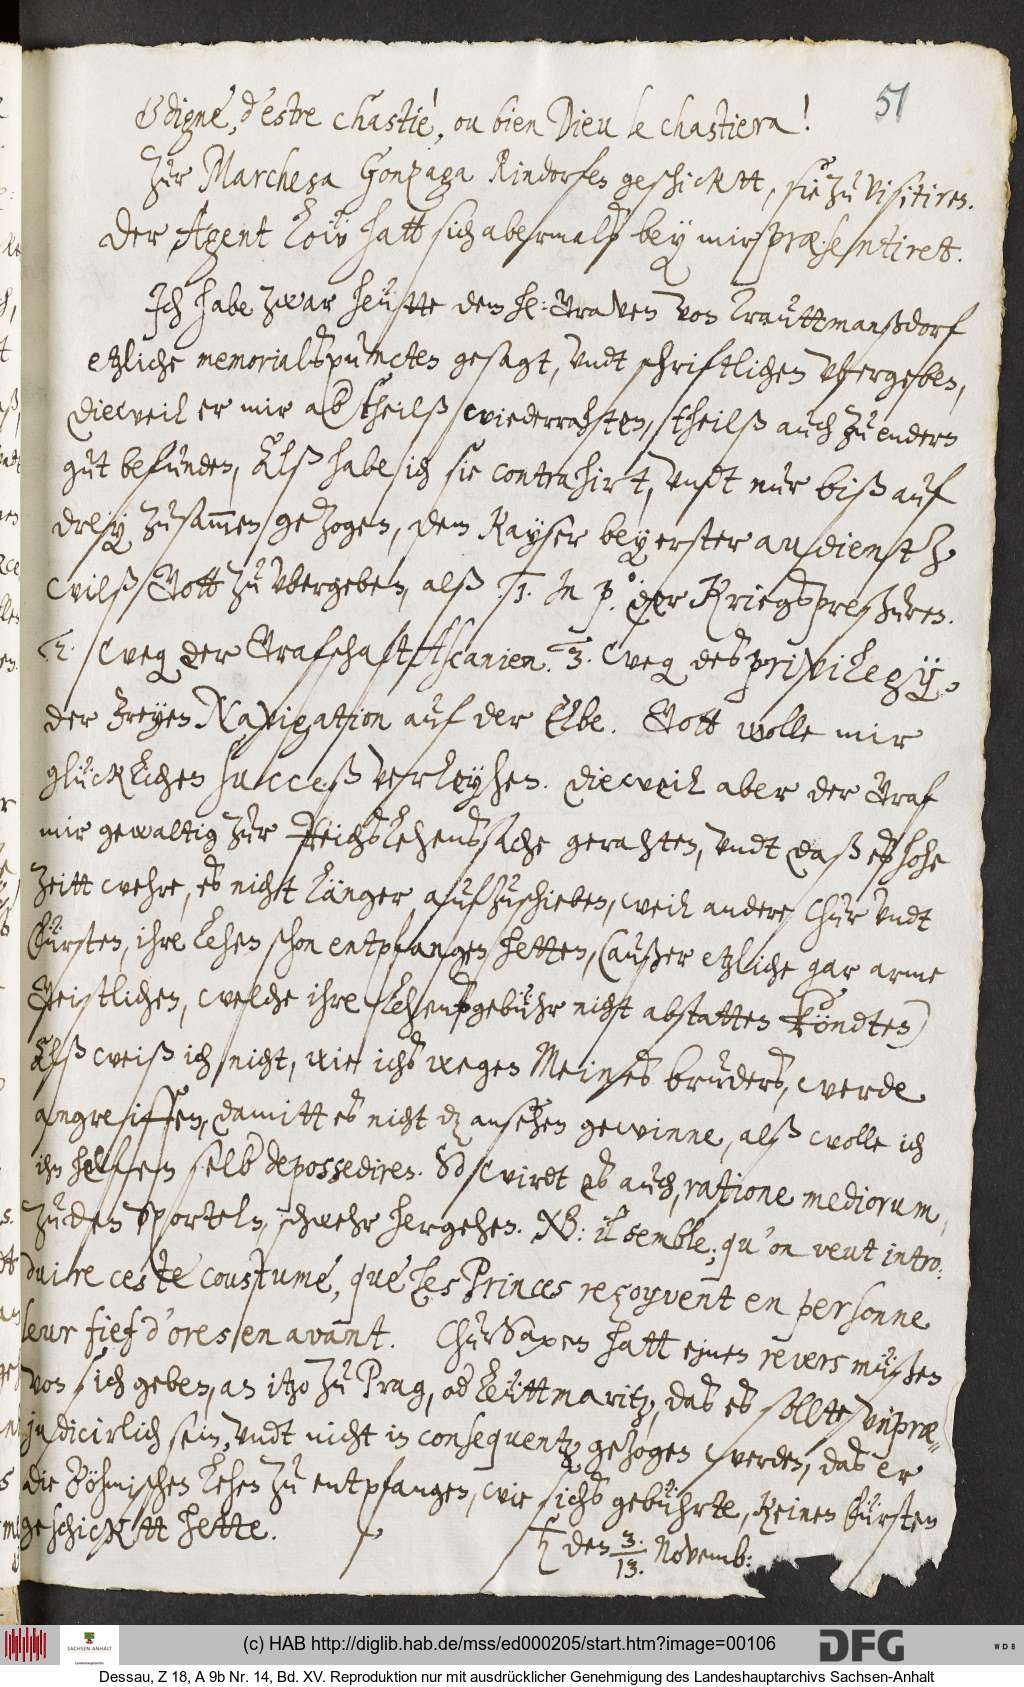 51
Ô digne, d'estre chastié, ou bien Dieu le chastiera!
Zur Marchesa Gonzaga Rindorfen geschicktt, sie zu visitiren.
Der Agent Löw hatt sich abermalß bey mir præsentiret.
Ich habe zwar heütte dem he: Graven von Trauttmanßdorf
etzliche memorialspuncten gesagt, undt schriftlichen ubergeben,
dieweil er mir ab(er) theilß wiederrahten, theilß auch zu endern
gut befunden, Alß habe ich sie contrahirt, undt nur biß auf
drey zusammen gezogen, dem Kayser bey erster audientz
wilß Gott zu ubergeben, alß: 1. In p° der Kriegspreßuren.
2. weg(en) der Grafschaft Ascanien. 3. weg(en) des privilegij
der freyen Navigation auf der Elbe. Gott wolle mir
glücklichen succeß verleyhen. Dieweil aber der Graf
mir gewaltig zur Reichslehenssache gerahten, undt daß es hohe
zeitt wehre, es nicht länger aufzuschieben, weil andere Chur undt
Fürsten, ihre Lehen schon entpfangen hetten, (außer etzliche gar arme
Geistlichen, welche ihre Lehensgebühr nicht abstatten köndten)
Alß weiß ich nicht, wie ichs wegen Meines bruders, werde
angreiffen, damitt es nicht dz ansehen gewinne, alß wolle ich
ihn helffen selb(er) depossediren. So wirdt es auch, ratione mediorum,
zu den Sporteln, schwehr hergehen. NB: il semble, qu'on veut intro:
duire ceste coustume, que les Princes reçoyvent en personne
leur fief d'ores en avant. ChurSaxen hatt einen revers müßen
von sich geben, an itzo zu Prag, od(er) Leüttmaritz, das es sollte unpræ=
judicirlich sein, undt nicht in consequentz gezogen werden, das er
die Böhmischen Lehen zu entpfangen, wie sichs gebührte, keinen Fürsten
geschicktt hette.
♄ den 3./13. Novemb:
(c) HAB http://diglib.hab.de/mss/ed000205/start.htm?image=00106
SACHSEN-ANHALT
DFG
WDB
Dessau, Z 18, A 9b Nr. 14, Bd. XV. Reproduktion nur mit ausdrücklicher Genehmigung des Landeshauptarchivs Sachsen-Anhalt